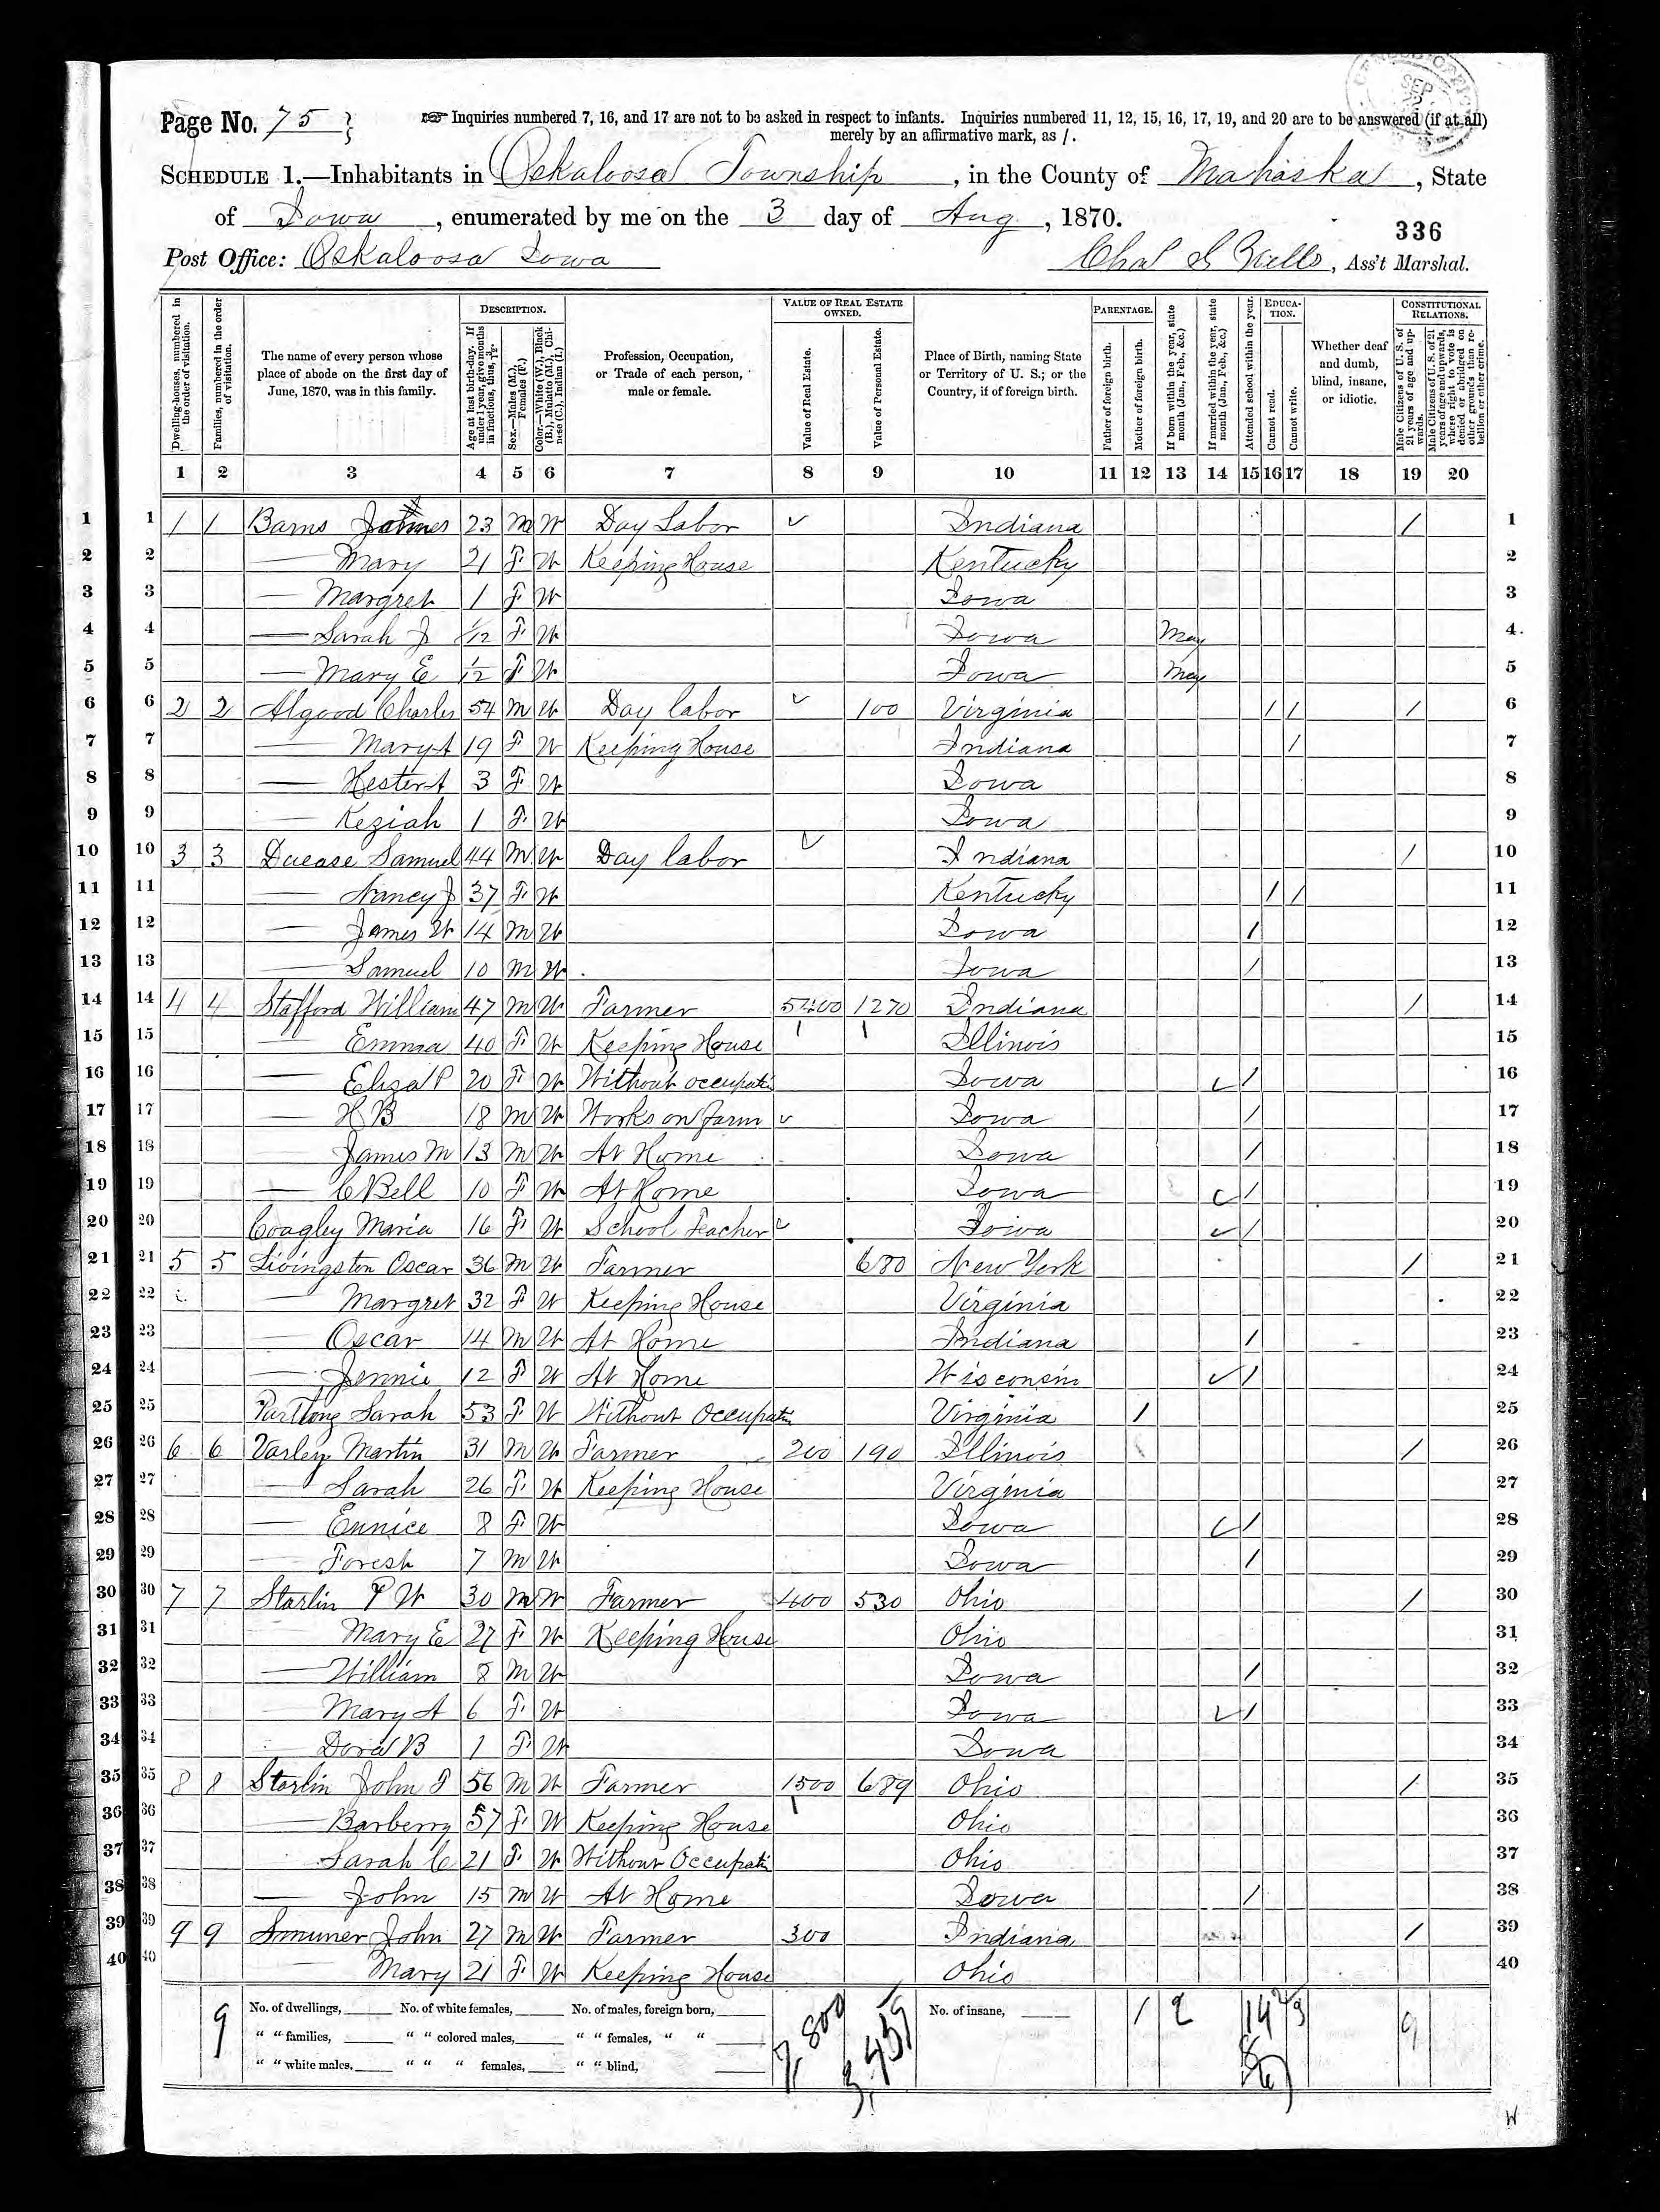 Page No. 75
☞ Inquiries numbered 7, 16, and 17 are not to be asked in respect to infants. Inquiries numbered 11, 12, 15, 16, 17, 19, and 20 are to be answered (if at all)
merely by an affirmative mark, as /.
SCHEDULE 1.—Inhabitants in Oskaloosa Township, in the County of Mahaska, State
of Iowa, enumerated by me on the 3 day of Aug, 1870.
336
Post Office: Oskaloosa Iowa
Ass't Marshal.
Dwelling-houses, numbered in the order of visitation.
Families, numbered in the order of visitation.
The name of every person whose place of abode on the first day of June, 1870, was in this family.
DESCRIPTION.
Age at last birth-day. If under 1 year, give months in fractions, thus, 3/12.
Sex.—Males (M.), Females (F.)
Color.—White (W.), Black (B.), Mulatto (M.), Chinese (C.), Indian (I.)
Profession, Occupation, or Trade of each person, male or female.
VALUE OF REAL ESTATE OWNED.
Value of Real Estate.
Value of Personal Estate.
Place of Birth, naming State or Territory of U. S.; or the Country, if of foreign birth.
PARENTAGE.
Father of foreign birth.
Mother of foreign birth.
If born within the year, state month (Jan., Feb., &c.)
If married within the year, state month (Jan., Feb., &c.)
Attended school within the year.
EDUCATION.
Cannot read.
Cannot write.
Whether deaf and dumb, blind, insane, or idiotic.
CONSTITUTIONAL RELATIONS.
Male Citizens of U. S. of 21 years of age and upwards.
Male Citizens of U. S. of 21 years of age and upwards, where right to vote is denied or abridged on other grounds than rebellion or other crime.
1 2 3 4 5 6 7 8 9 10 11 12 13 14 15 16 17 18 19 20
1 1 1 Barns James 23 M W Day Labor Indiana / 1
2 — Mary 21 F W Keeping House Kentucky 2
3 — Margret 1 F W Iowa 3
4 — Sarah J 1/12 F W Iowa May 4
5 — Mary E 1/12 F W Iowa May 5
6 2 2 Algood Charles 54 M W Day labor 100 Virginia / / / 6
7 — Mary A 19 F W Keeping House Indiana / 7
8 — Hester A 3 F W Iowa 8
9 — Keziah 1 F W Iowa 9
10 3 3 Samuel 44 M W Day labor Indiana / 10
11 — Nancy J 37 F W Kentucky / / 11
12 — James W 14 M W Iowa / 12
13 — Samuel 10 M W Iowa / 13
14 4 4 Stafford William 47 M W Farmer 5400 1270 Indiana / 14
15 — Emma 40 F W Keeping House Illinois 15
16 — Eliza P 20 F W Without occupatin Iowa / 16
17 — H B 18 M W Works on farm Iowa / 17
18 — James M 13 M W At Home Iowa / 18
19 — C Bell 10 F W At Home Iowa / 19
20 Coagley Maria 16 F W School Teacher Iowa / 20
21 5 5 Livingston Oscar 36 M W Farmer 680 New York / 21
22 — Margret 32 F W Keeping House Virginia 22
23 — Oscar 14 M W At Home Indiana / 23
24 — Jennie 12 F W At Home Wisconsin / 24
25 Sarah 53 F W Without Occupatin Virginia / 25
26 6 6 Varley Martin 31 M W Farmer 200 190 Illinois / 26
27 — Sarah 26 F W Keeping House Virginia 27
28 — Eunice 8 F W Iowa / 28
29 — Forest 7 M W Iowa / 29
30 7 7 Starlin P W 30 M W Farmer 400 530 Ohio / 30
31 — Mary E 27 F W Keeping House Ohio 31
32 — William 8 M W Iowa / 32
33 — Mary A 6 F W Iowa / 33
34 — Dora B 1 F W Iowa 34
35 8 8 Starlin John T 56 M W Farmer 1500 689 Ohio / 35
36 — Barberry 57 F W Keeping House Ohio 36
37 — Sarah C 21 F W Without Occupatin Ohio 37
38 — John 15 M W At Home Iowa / 38
39 9 9 John 27 M W Farmer 300 Indiana / 39
40 — Mary 21 F W Keeping House Ohio 40
9 No. of dwellings, No. of white females, No. of males, foreign born, 7,800 3,459 No. of insane, 1 2 9
" " families, " " colored males, " " females, " "
" " white males, " " " females, " " blind,
W